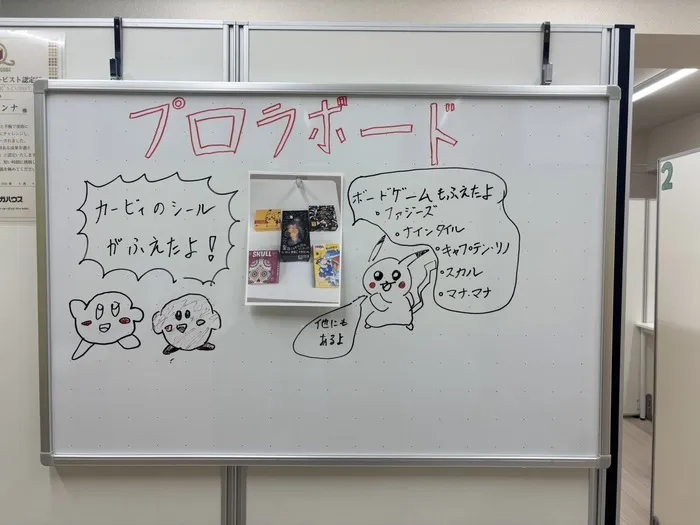 プロラボード
カービィのシール
がふえたよ!
SKULL
ボードゲームもふえたよ
・ファジーズ
・ナインタイル
・キャプテン・リノ
・スカル
・マナ・マナ
他にも
あるよ
2